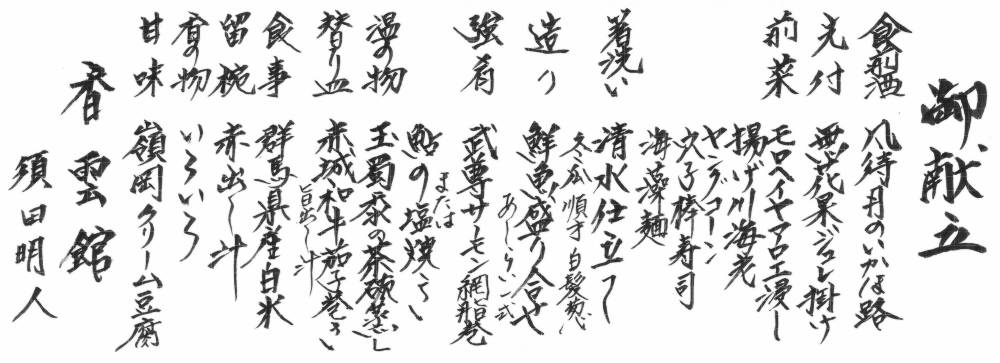 御献立
食前酒 風待月のいかほ路
先付 無花果ジュレ掛け
前菜 モロヘイヤマロエ浸し
揚げ川海老
ヤングコーン
穴子棒寿司
海藻麺
箸洗い 清水仕立て
冬瓜 順才 白髪葱
造り 鮮魚盛り合せ
あしらい一式
強肴 武尊サーモン網脂巻
または
鮎の塩焼き
温の物 玉蜀黍の茶碗蒸し
替り皿 赤城和牛茄子巻き
旨出し汁
食事 群馬県産白米
留椀 赤出し汁
香の物 いろいろ
甘味 嶺岡クリーム豆腐
香雲館
須田明人